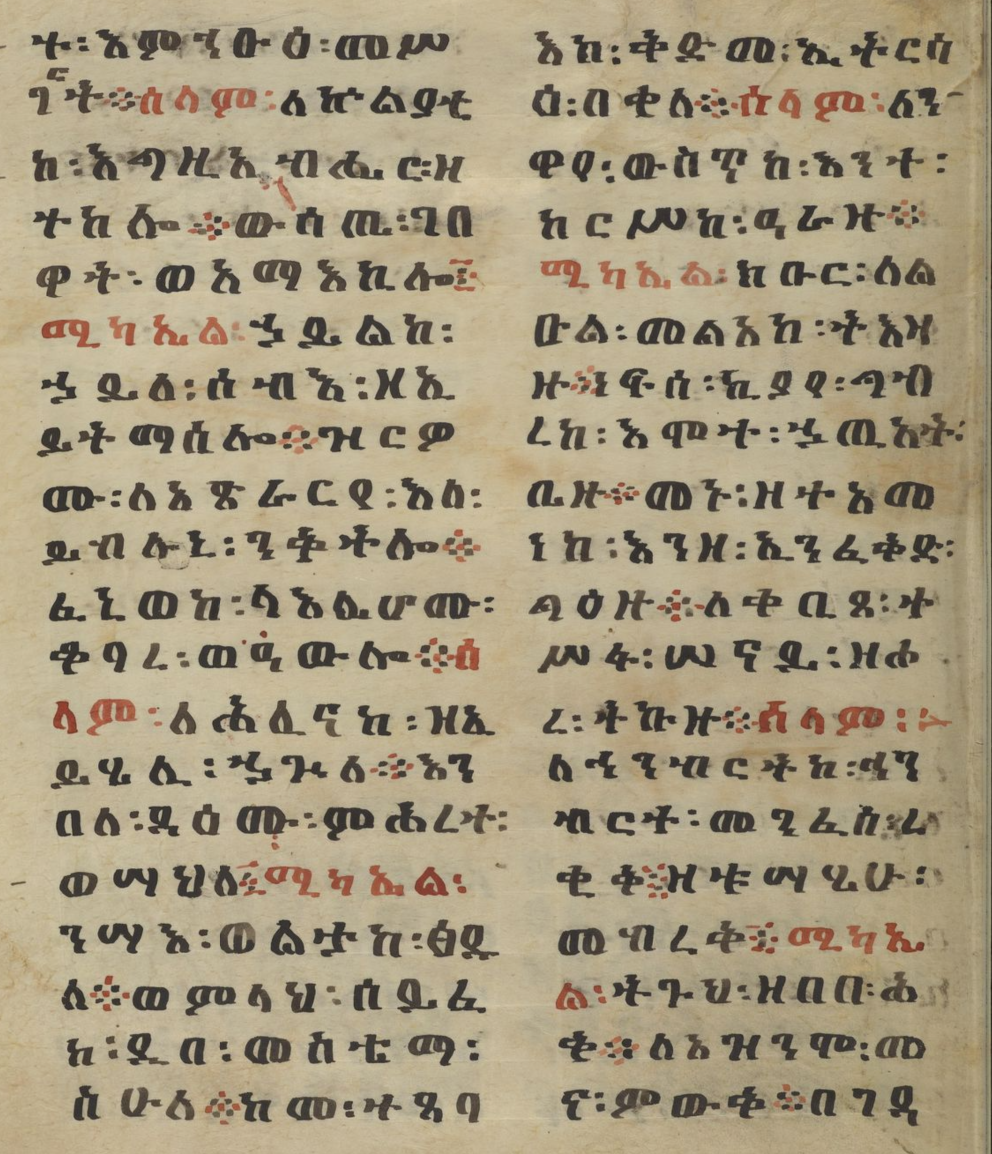 ት፡እምንቡዕ፡መሥ
ገርት፨ሰላም፡ለኵልያቲ
ከ፡እግዚአብሔር፡ዘ
ተከሎ፨ውሳጤ፡ገበ
ዋት፡ወአማእከሎ፨
ሚካኤል፡ኃይልከ፡
ኃይለ፡ሰብእ፡ዘኢ
ይትማሰሎ፨ዝርዎ
ሙ፡ለአጽራርየ፡እለ፡
ይብሉኒ፡ንቅትሎ፨
ፈኒወከ፡ላእሌሆሙ፡
ቆባረ፡ወዓውሎ፨ሰ
ላም፡ለሕሊናከ፡ዘኢ
ይሄሊ፡ኃጉለ፨እን
በለ፡ዳዕሙ፡ምሕረተ፡
ወሣህለ፨ሚካኤል፡
ንሣእ፡ወልታከ፡ፀዳ
ለ፨ወምላህ፡ሰይፈ
ከ፡ድበ፡መስቴማ፡
ስሁለ፨ከመ፡ተጻባ
እከ፡ቅድመ፡ኢትርሳ
ዕ፡በቀለ፨ሰላም፡ለን
ዋየ፡ውስጥከ፡እንተ፡
ከርሥከ፡ዓራዙ፨
ሚካኤል፡ክቡር፡ሰል
ቡል፡መልአከ፡ትእዛ
ዙ፨ነፍሰ፡ኪያየ፡ገብ
ረከ፡እሞተ፡ኃጢአት፡
ቤዙ፨መኑ፡ዘተአመ
ነከ፡እንዘ፡ኢንፈቅድ፡
ጓዕዙ፨ለቀቢጸ፡ተ
ሥፋ፡ሠናይ፡ዘሐ
ረ፡ትኩዙ፨ሰላም፡
ለኂንብርትከ፡ዓን
ብርት፡መንፈስ፡ረ
ቂቅ፨ዘቱሣሂሁ፡
መብረቅ፨ሚካኤ
ል፡ትጉህ፡ዘበቡ፡ሐ
ቅ፨ለእዝንሞ፡መ
ና፡ምውቅ፨በገዳ